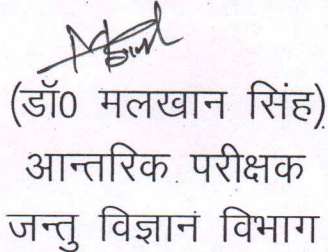 (डॉ0 मलखान सिंह)
आन्तरिक परीक्षक
जन्तु विज्ञान विभाग